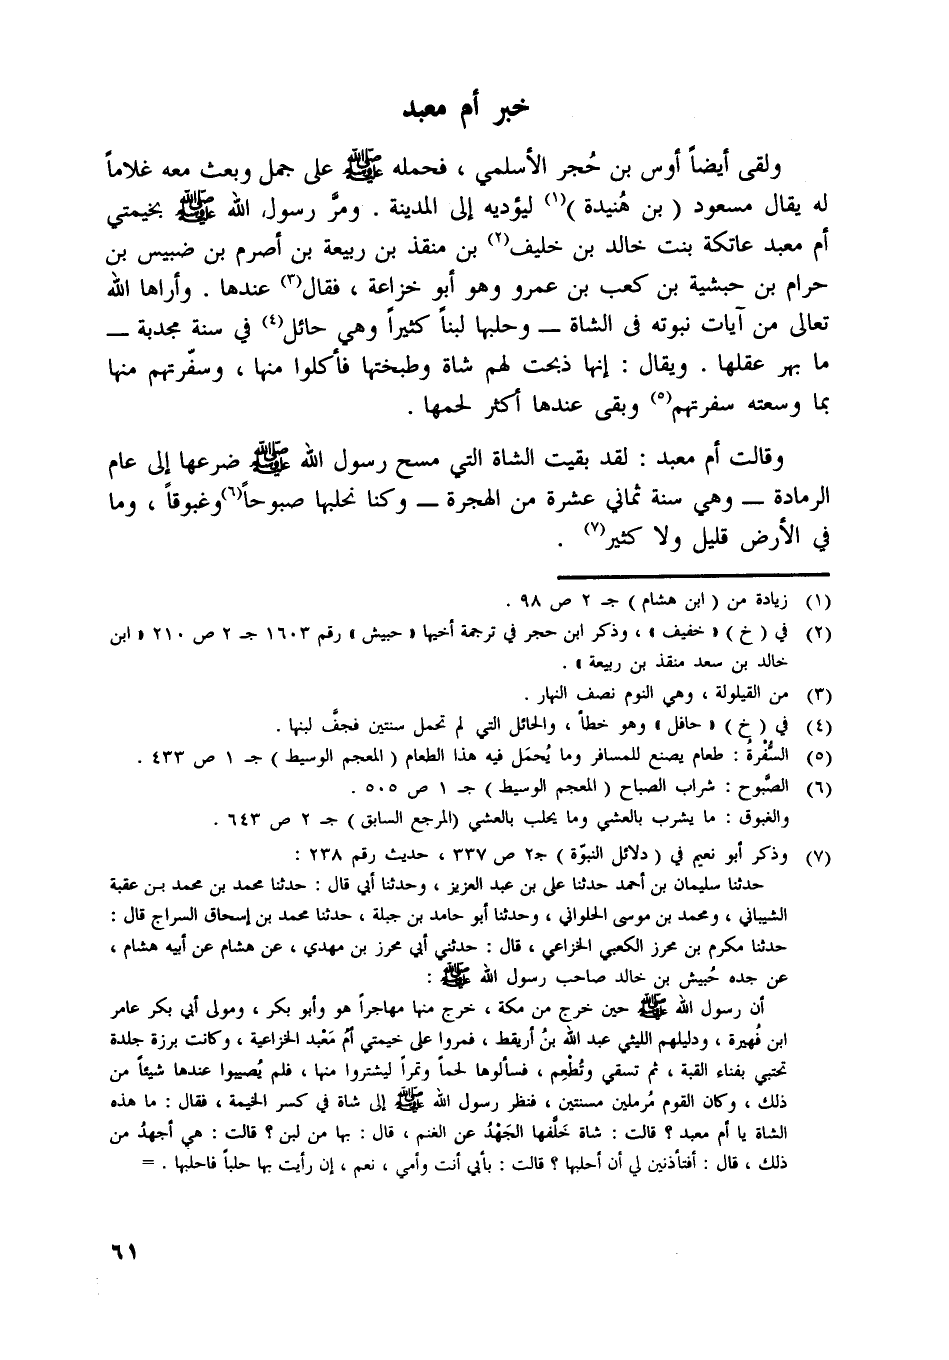 خبر أم معبد
ولقى أيضاً أوس بن حُجر الأسلمي ، فحمله ﷺ على جمل وبعث معه غلاماً
له يقال مسعود ( بن هُنيدة )(١) ليؤديه إلى المدينة . ومرَّ رسول الله ﷺ بخيمتي
أم معبد عاتكة بنت خالد بن خليف(٢) بن منقذ بن ربيعة بن أصرم بن ضبيس بن
حرام بن حبشية بن كعب بن عمرو وهو أبو خزاعة ، فقال(٣) عندها . وأراها الله
تعالى من آيات نبوته فى الشاة ــ وحلبها لبناً كثيراً وهي حائل(٤) في سنة مجدبة ــ
ما بهر عقلها . ويقال : إنها ذبحت لهم شاة وطبختها فأكلوا منها ، وسفّرتهم منها
بما وسعته سفرتهم(٥) وبقى عندها أكثر لحمها .
وقالت أم معبد : لقد بقيت الشاة التي مسح رسول الله ﷺ ضرعها إلى عام
الرمادة ــ وهي سنة ثماني عشرة من الهجرة ــ وكنا نحلبها صبوحاً(٦)وغبوقاً ، وما
في الأرض قليل ولا كثير(٧) .
(١) زيادة من ( ابن هشام ) جـ ٢ ص ٩٨ .
(٢) في ( خ ) « خفيف » ، وذكر ابن حجر في ترجمة أخيها « حبيش » رقم ١٦٠٣ جـ ٢ ص ٢١٠ « ابن
خالد بن سعد منقذ بن ربيعة » .
(٣) من القيلولة ، وهي النوم نصف النهار .
(٤) في ( خ ) « حافل » وهو خطأ ، والحائل التي لم تحمل سنتين فجفَّ لبنها .
(٥) السُّفْرةُ : طعام يصنع للمسافر وما يُحمَل فيه هذا الطعام ( المعجم الوسيط ) جـ ١ ص ٤٣٣ .
(٦) الصَّبوح : شراب الصباح ( المعجم الوسيط ) جـ ١ ص ٥٠٥ .
والغبوق : ما يشرب بالعشي وما يحلب بالعشي (المرجع السابق ) جـ ٢ ص ٦٤٣ .
(٧) وذكر أبو نعيم في ( دلائل النبوّة ) جـ٢ ص ٣٣٧ ، حديث رقم ٢٣٨ :
حدثنا سليمان بن أحمد حدثنا على بن عبد العزيز ، وحدثنا أبي قال : حدثنا محمد بن محمد بـن عقبة
الشيباني ، ومحمد بن موسى الحلواني ، وحدثنا أبو حامد بن جبلة ، حدثنا محمد بن إسحاق السراج قال :
حدثنا مكرم بن محرز الكعبي الخزاعي ، قال : حدثني أبي محرز بن مهدي ، عن هشام عن أبيه هشام ،
عن جده حُبيش بن خالد صاحب رسول الله ﷺ :
أن رسول الله ﷺ حين خرج من مكة ، خرج منها مهاجراً هو وأبو بكر ، ومولى أبي بكر عامر
ابن فُهيرة ، ودليلهم الليثي عبد الله بنُ أريقط ، فمروا على خيمتي أمُ مَعْبد الخزاعية ، وكانت برزة جلدة
تحتبي بفناء القبة ، ثم تسقي وتُطْعِم ، فسألوها لحماً وتمراً ليشتروا منها ، فلم يُصيبوا عندها شيئاً من
ذلك ، وكان القوم مُرملين مسنتين ، فنظر رسول الله ﷺ إلى شاة في كسر الخيمة ، فقال : ما هذه
الشاة يا أم معبد ؟ قالت : شاة خَلَّفها الجَهْدُ عن الغنم ، قال : بها من لبن ؟ قالت : هي أجهدُ من
ذلك ، قال : أفتأذنين لي أن أحلبها ؟ قالت : بأبي أنت وأمي ، نعم ، إن رأيت بها حلباً فاحلبها . =
٦١